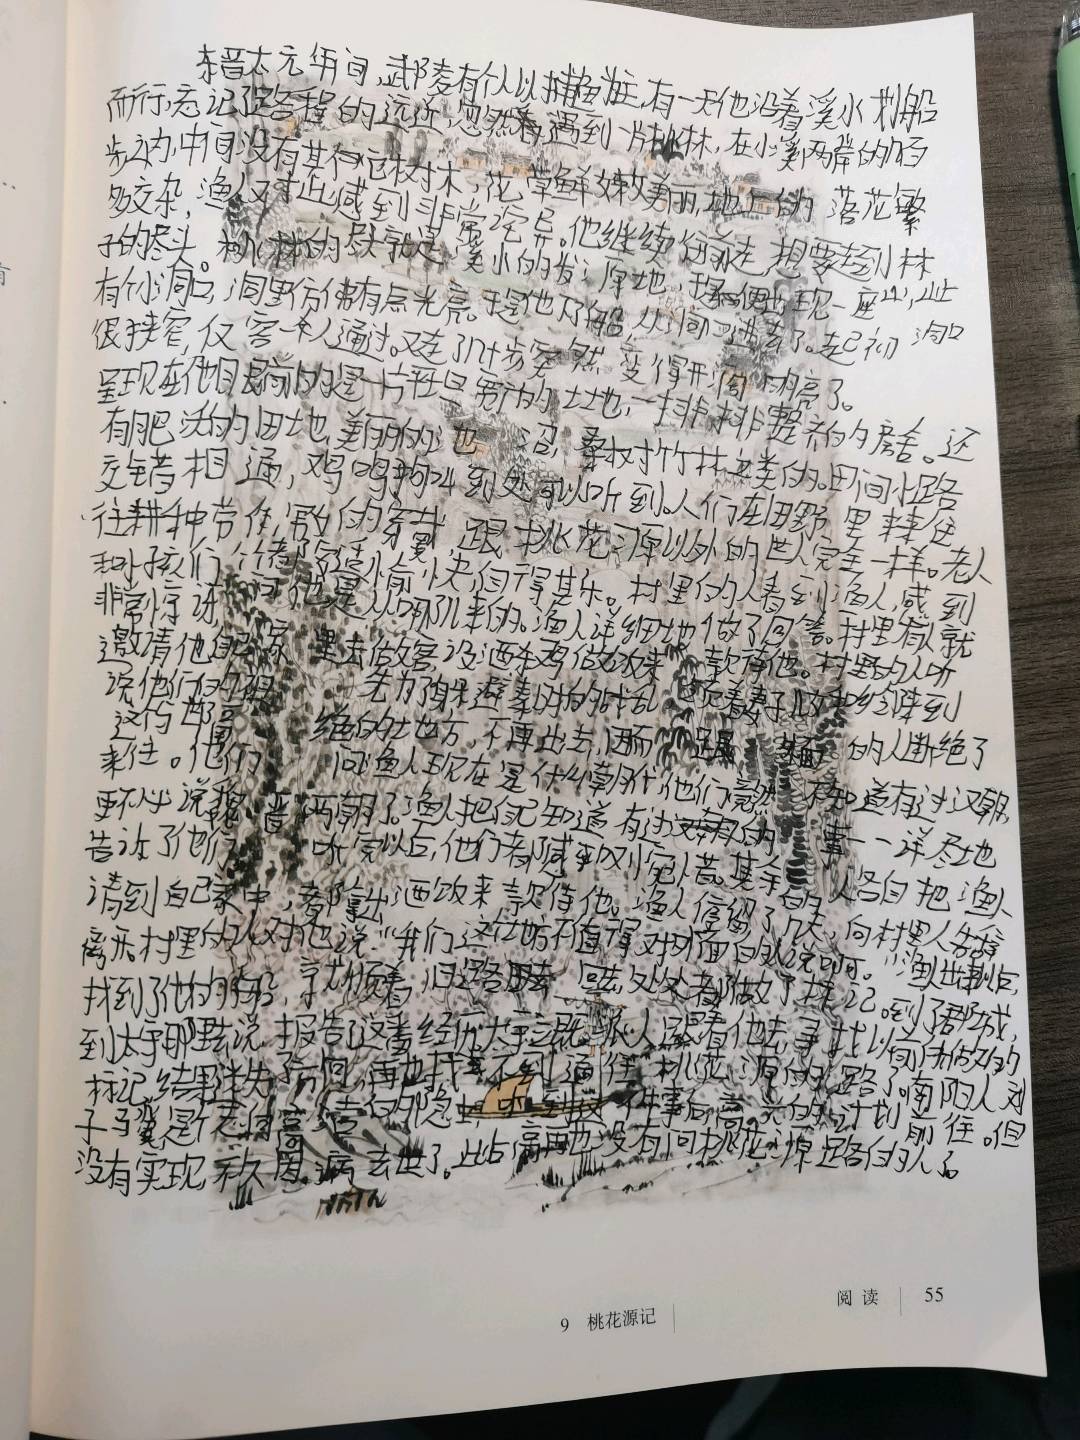 东晋太元年间,武陵有个人以捕鱼为生,有一天他沿着溪水划船
而行,忘记了路程的远近,忽然遇到一片桃林,在小溪两岸的几百
步之内,中间没有其他树,花草鲜嫩美丽,地上的落花繁
多交杂,渔人对此感到非常诧异。他继续向前走,想要走到林
子的尽头。桃林的尽头就是溪水的发源地,便出现一座山,山上
有个小洞口,洞里仿佛有点光亮。于是他下了船,从洞口进去了。起初洞口
很狭窄,仅容一人通过。又走了几十步,突然变得开阔明亮了。
呈现在他眼前的是一片的土地,一排排整齐的房舍。还
有肥沃的田地,美丽的池沼,桑树竹林一类的。田间小路
交错相通,鸡鸣狗叫到处可以听到。人们在田野里来往
耕种劳作,男女的穿戴跟桃花源以外的世人完全一样。老人
和小孩们个个都安适愉快,自得其乐。村里的人看到渔人,感到
非常惊讶,问他是从哪儿来的。渔人详细地做了回答。村里有人就
邀请他到自己家里去做客,设酒杀鸡做饭来款待他。村里的人听
说他们的祖先为了躲避秦时的战乱,领着妻子儿女和乡邻来到
这与世隔绝的地方,不再出去,因而跟外面的人断绝了
来往。他们问渔人现在是什么朝代,他们竟然不知道有过汉朝,
更不必说魏晋两朝了。渔人把自己知道的事一一详尽地
告诉了他们,听完以后,他们都感到叹惋惜。其余的人各自把渔人
请到自己家中,都拿出酒饭来款待他。渔人停留了几天,向村里人告辞
离开。村里的人对他说:“我们这个地方不值得对外面的人说啊。”渔人出来以后,
找到了他的船,就顺着旧路回去,处处都做了标记。到了郡城,
到太守那里去说,报告了这番经历。太守立即派人跟着他去寻找以前所做的
标记,结果迷失了方向,再也找不到通往桃花源的路了。南阳人刘
子骥是个志向高洁的隐士,听到这件事后,高兴的计划前往。但
没有实现,不久因病去世了。此后再也没有问桃花源路的人了。
阅读 55
9 桃花源记